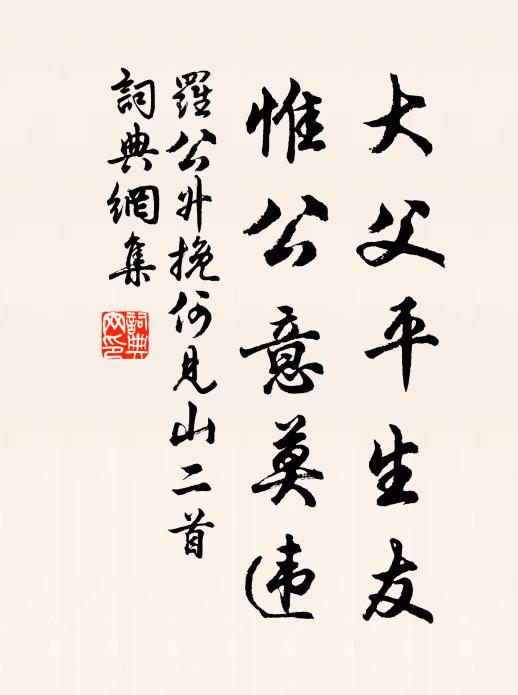 大父平生友
惟公意莫违
羅公升挽何見山二首
詞典網集
詞典网印